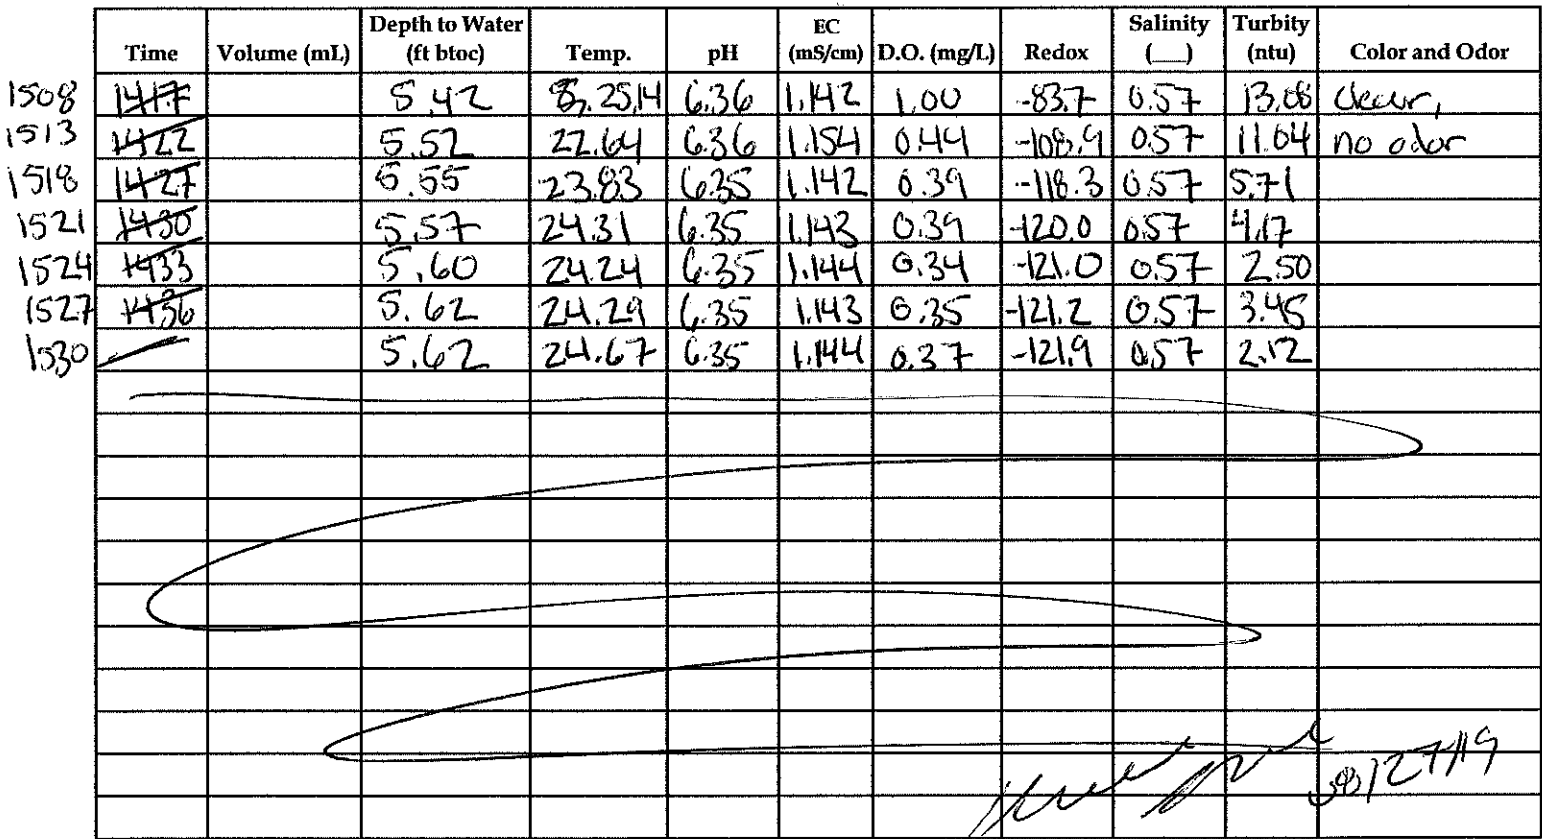 Time Volume (mL) Depth to Water (ft btoc) Temp. pH EC (mS/cm) D.O. (mg/L) Redox Salinity (__) Turbity (ntu) Color and Odor
1508 1417 5.42 25.14 6.36 1.142 1.00 -83.7 0.57 13.08 clear,
1513 1422 5.52 22.64 6.36 1.154 0.44 -108.9 0.57 11.04 no odor
1518 1427 5.55 23.83 6.35 1.142 0.39 -118.3 0.57 5.71
1521 1430 5.57 24.31 6.35 1.143 0.39 -120.0 0.57 4.17
1524 1433 5.60 24.24 6.35 1.144 0.34 -121.0 0.57 2.50
1527 1436 5.62 24.29 6.35 1.143 0.35 -121.2 0.57 3.45
1530 5.62 24.67 6.35 1.144 0.37 -121.9 0.57 2.12
08/27/19